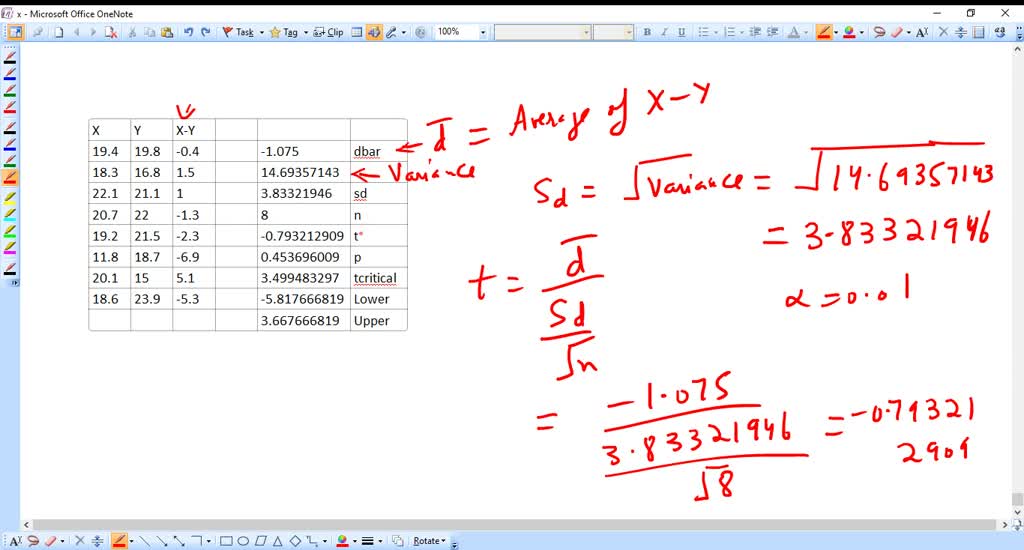 x - Microsoft Office OneNote
Task Tag Clip 100% B I U
X Y X-Y
19.4 19.8 -0.4 -1.075 dbar
18.3 16.8 1.5 14.69357143 Variance
22.1 21.1 1 3.83321946 sd
20.7 22 -1.3 8 n
19.2 21.5 -2.3 -0.793212909 t*
11.8 18.7 -6.9 0.453696009 p
20.1 15 5.1 3.499483297 tcritical
18.6 23.9 -5.3 -5.817666819 Lower
3.667666819 Upper
d̅ = Average of X-Y
Sd = √Variance = √14.69357143
= 3.83321946
t = d̅
Sd
√n
α = 0.01
= -1.075 = -0.79321
3.83321946 2909
√8
Rotate